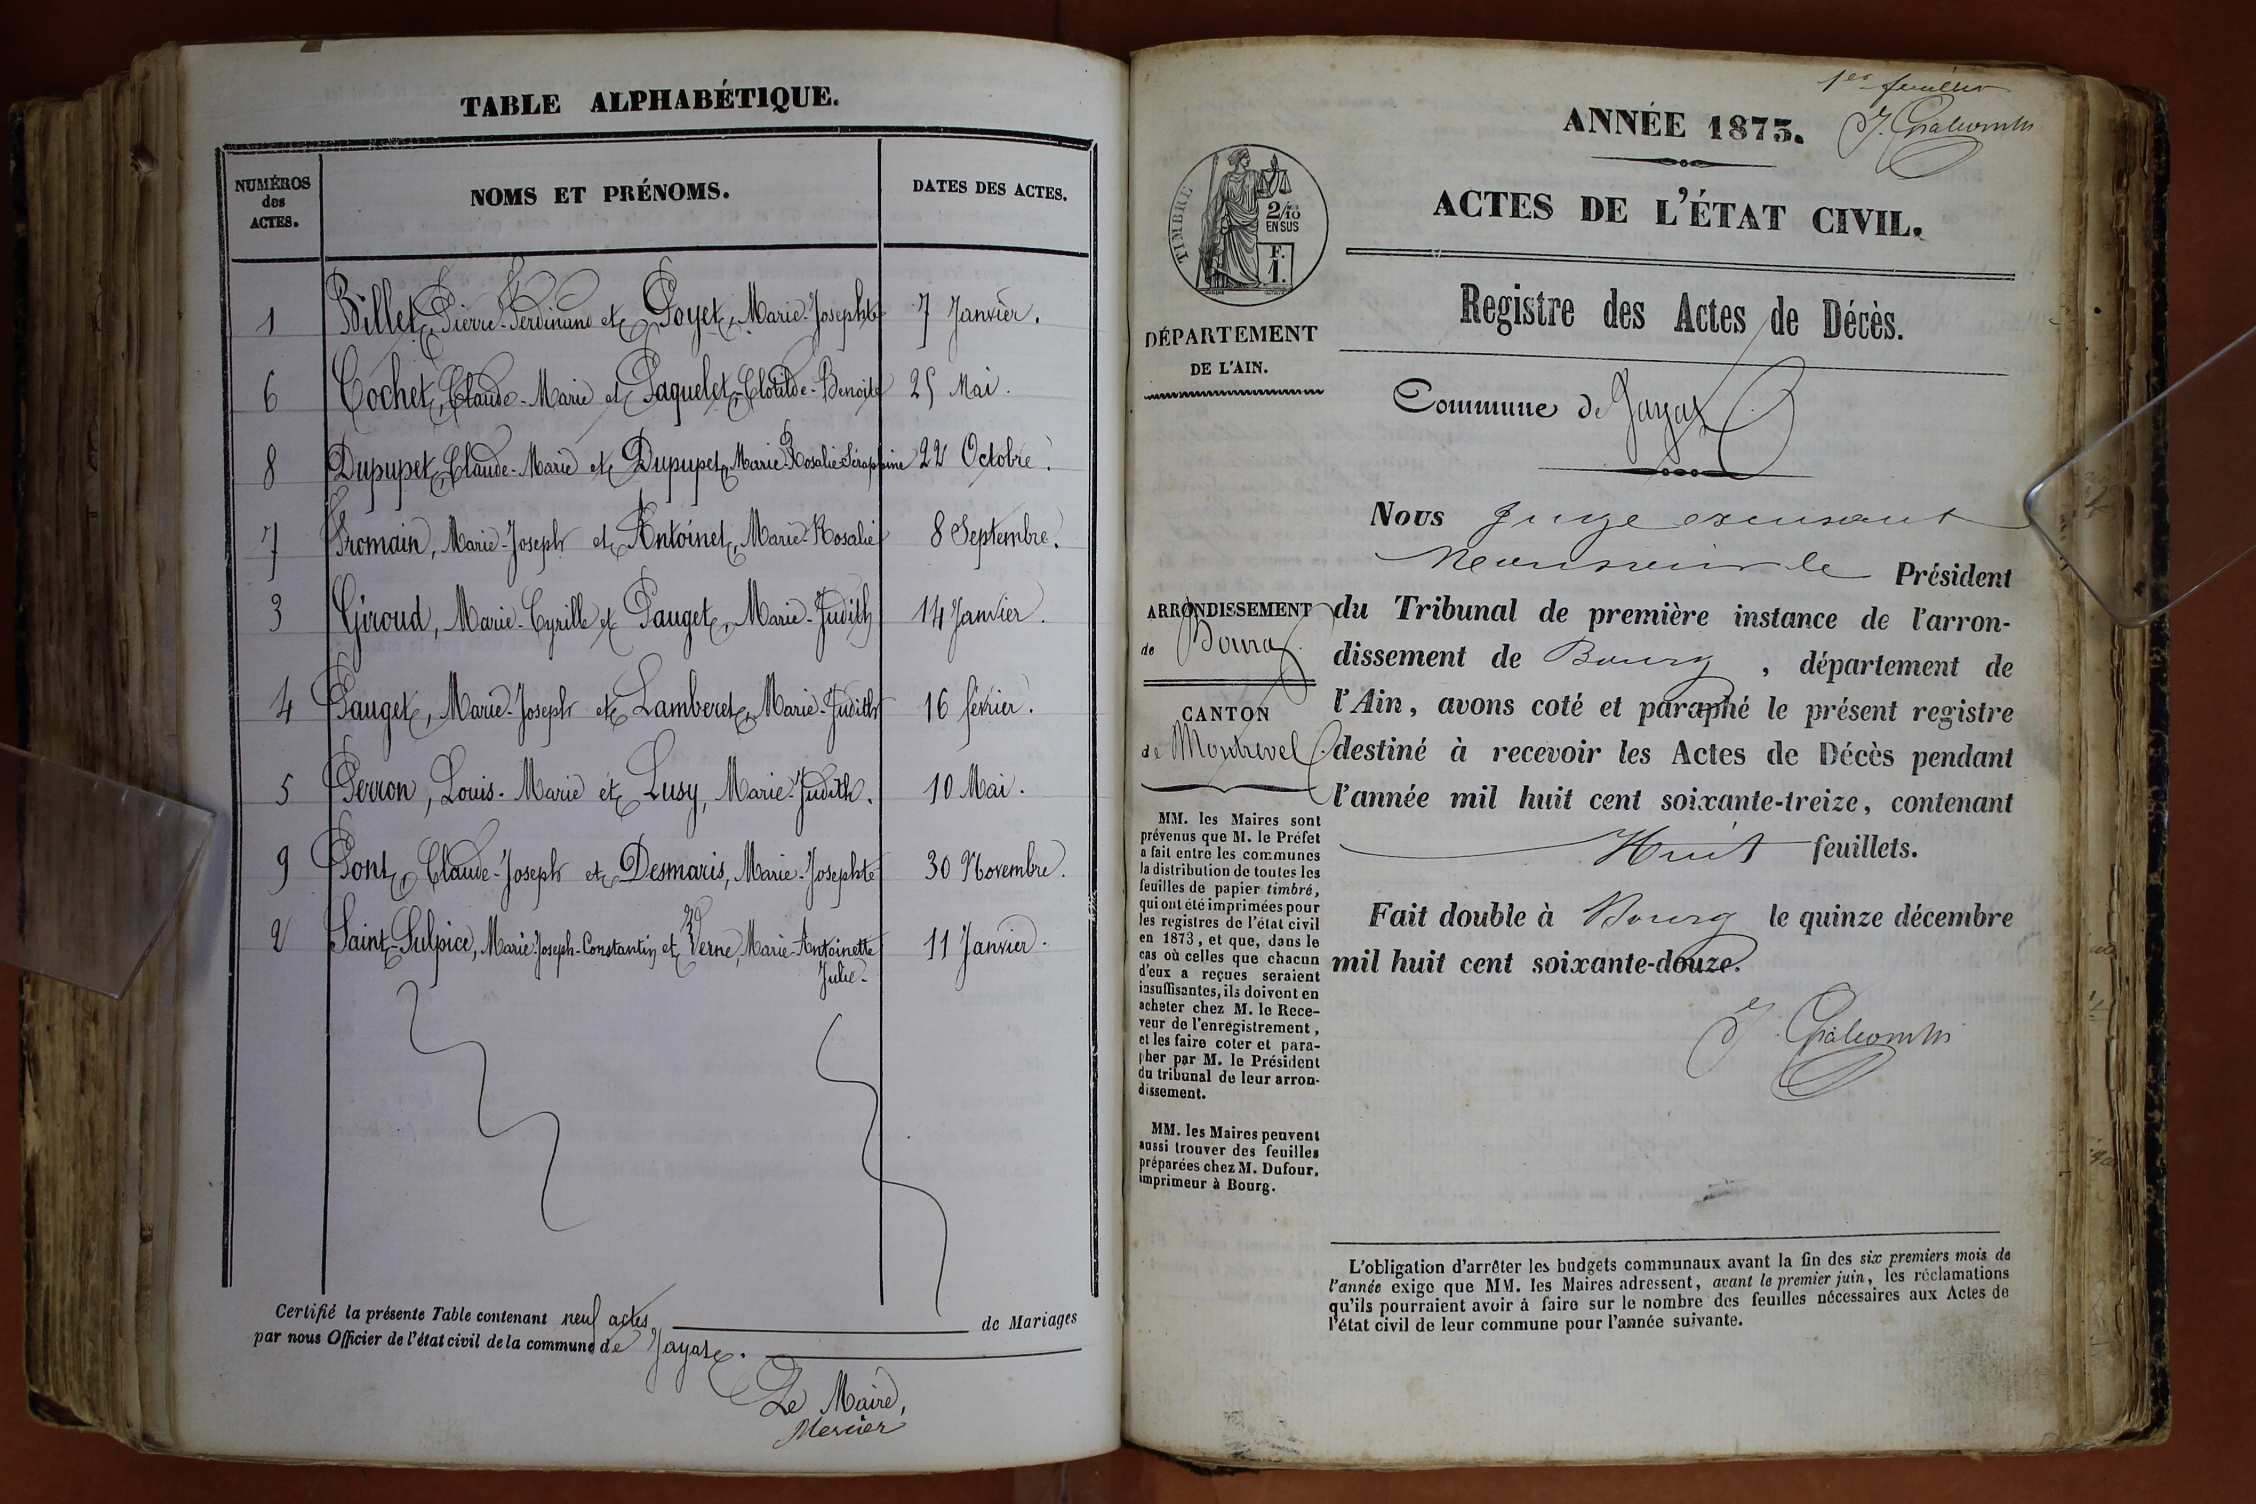 TABLE ALPHABÉTIQUE.
NUMÉROS des ACTES. NOMS ET PRÉNOMS. DATES DES ACTES.
1 Billet, Pierre-Ferdinand et Poyet, Marie-Josephte 7 Janvier.
6 Cochet, Claude-Marie et Paquelet, Clotilde-Benoite 25 Mai.
8 Dupupet, Claude-Marie et Dupupet, Marie-Rosalie-Séraphine 22 Octobre.
7 Fromain, Marie-Joseph et Antoinet, Marie-Rosalie 8 Septembre.
3 Giroud, Marie-Cyrille et Pauget, Marie-Judith 14 Janvier.
4 Pauget, Marie-Joseph et Lamberet, Marie-Judith 16 février.
5 Perron, Louis-Marie et Lusy, Marie-Judith. 10 Mai.
9 Pont, Claude-Joseph et Desmaris, Marie-Josephte 30 Novembre.
2 Saint-Sulpice, Marie-Joseph-Constantin et Verne, Marie-Antoinette 11 Janvier.
Julie.
Certifié la présente Table contenant neuf actes de Mariages
par nous Officier de l'état civil de la commune de Jayat.
Le Maire,
Mercier
1er feuillet
ANNÉE 1873.
ACTES DE L'ÉTAT CIVIL.
TIMBRE
2/10
EN SUS
F.
1.
Registre des Actes de Décès.
DÉPARTEMENT
DE L'AIN.
Commune de Jayat
Nous Juge excusant
Monsieur le Président
du Tribunal de première instance de l'arron-
dissement de Bourg, département de
l'Ain, avons coté et paraphé le présent registre
destiné à recevoir les Actes de Décès pendant
l'année mil huit cent soixante-treize, contenant
Huit feuillets.
Fait double à Bourg le quinze décembre
mil huit cent soixante-douze.
ARRONDISSEMENT
de Bourg
CANTON
de Montrevel
MM. les Maires sont
prévenus que M. le Préfet
a fait entre les communes
la distribution de toutes les
feuilles de papier timbré,
qui ont été imprimées pour
les registres de l'état civil
en 1873, et que, dans le
cas où celles que chacun
d'eux a reçues seraient
insuffisantes, ils doivent en
acheter chez M. le Rece-
veur de l'enregistrement,
et les faire coter et para-
pher par M. le Président
du tribunal de leur arron-
dissement.
MM. les Maires peuvent
aussi trouver des feuilles
préparées chez M. Dufour,
imprimeur à Bourg.
L'obligation d'arrêter les budgets communaux avant la fin des six premiers mois de
l'année exige que MM. les Maires adressent, avant le premier juin, les réclamations
qu'ils pourraient avoir à faire sur le nombre des feuilles nécessaires aux Actes de
l'état civil de leur commune pour l'année suivante.